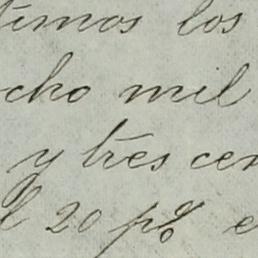 timos los
cho mil
y tres cen
l 20 p% e